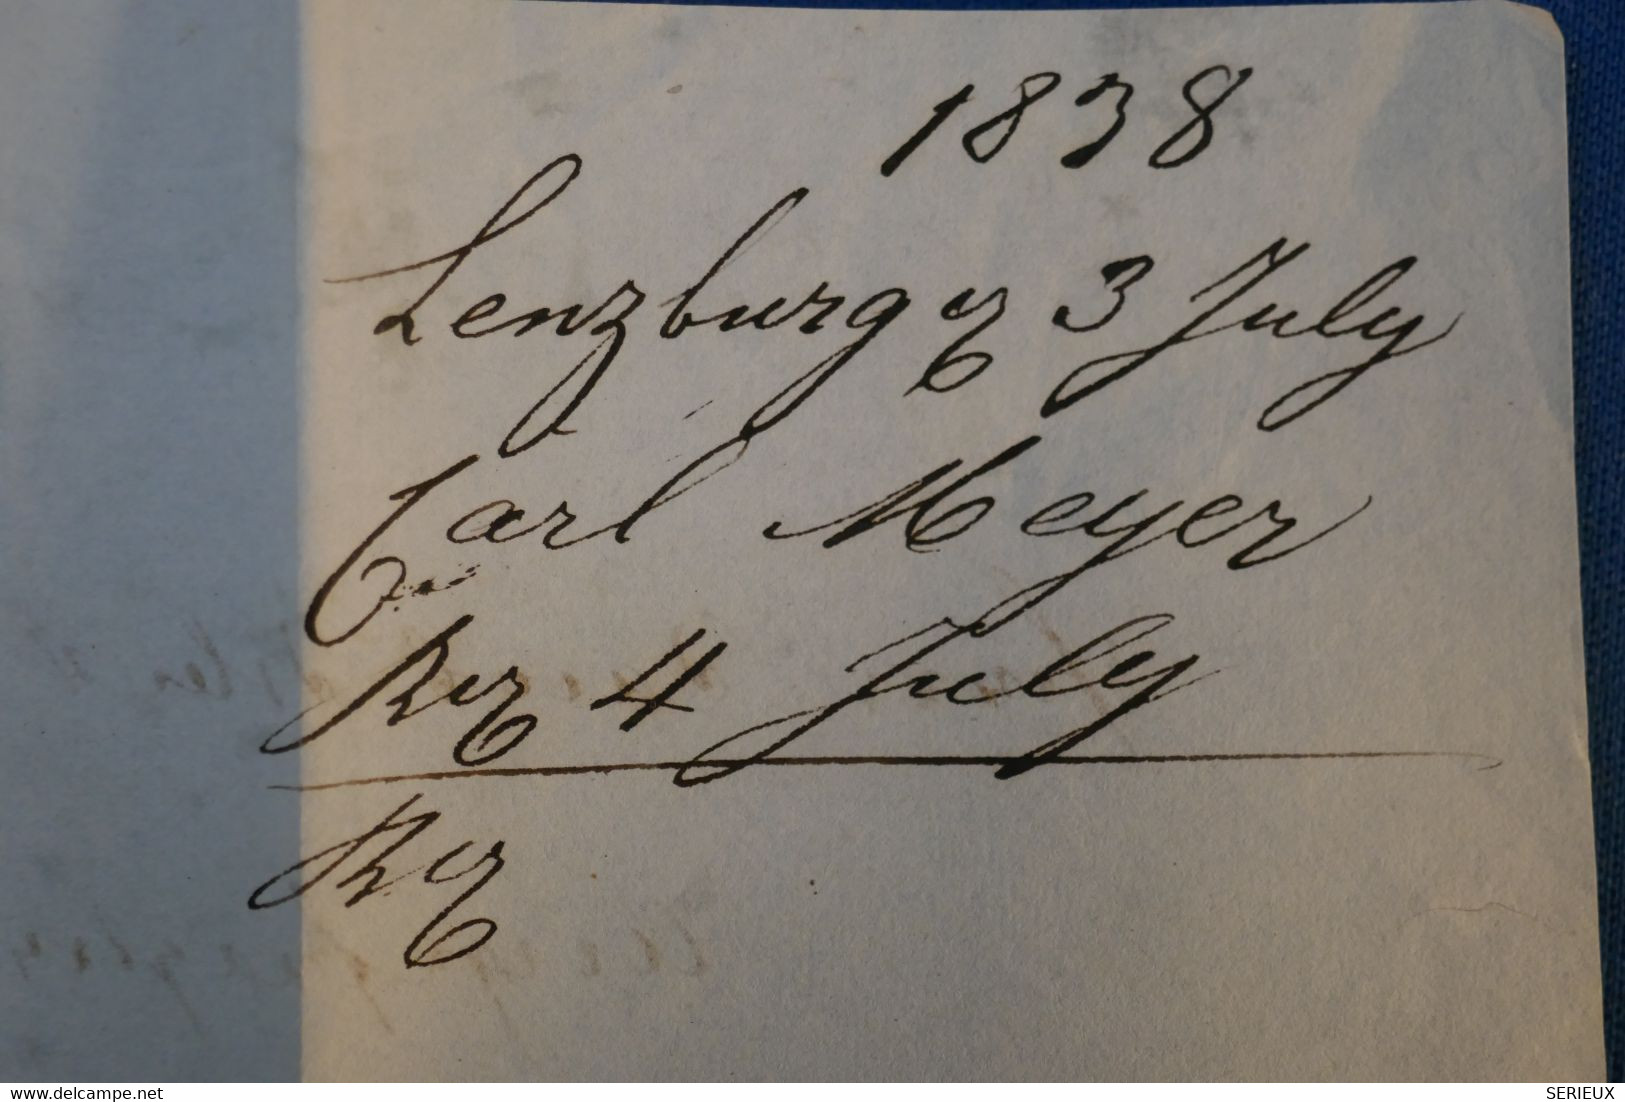 1838
Lenzburg 3 July
Carl Meyer
4 July
delcampe.net
SERIEUX